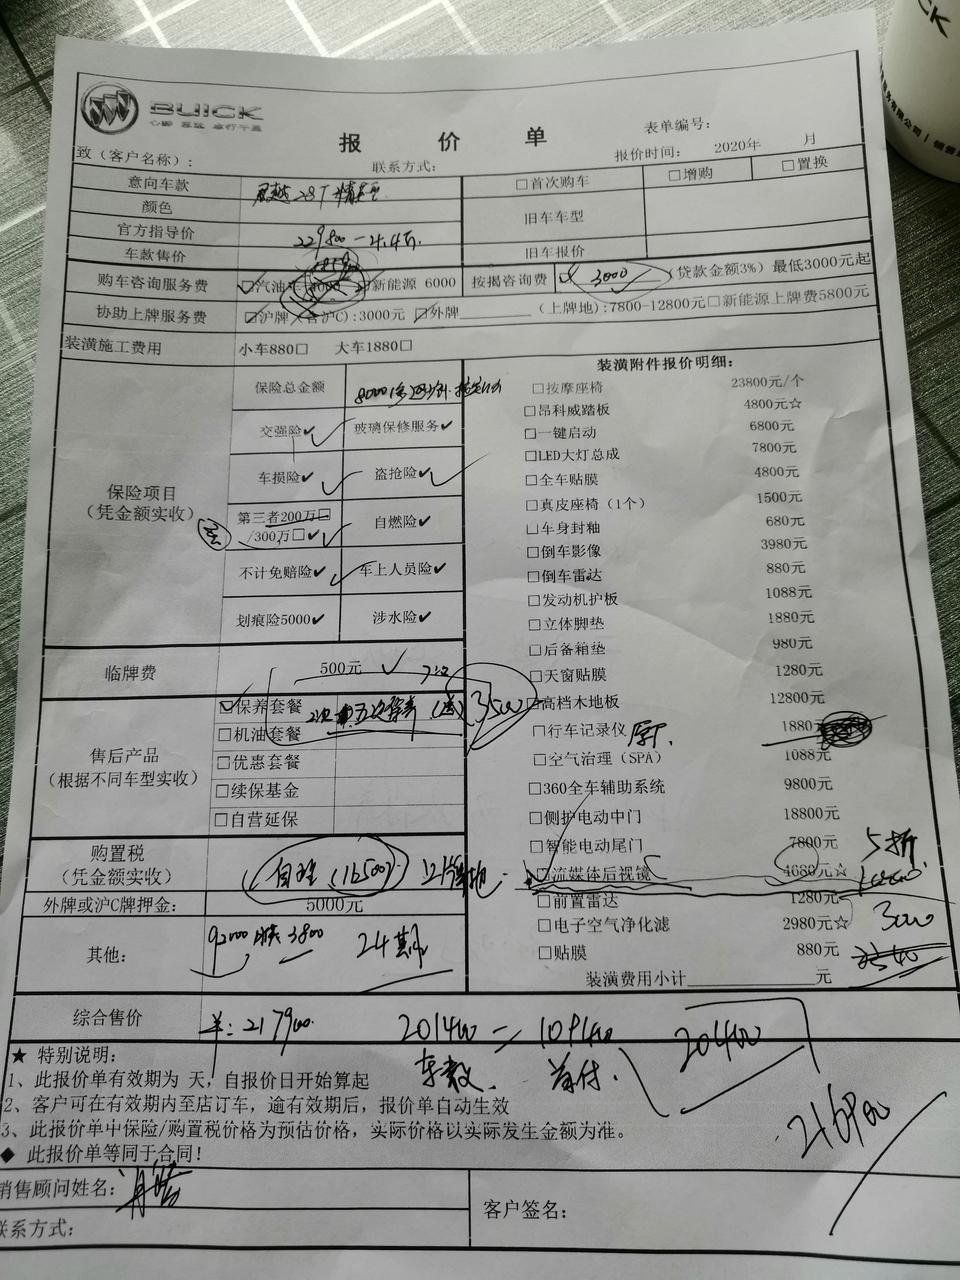 BUICK
报 价 单
表单编号：
致（客户名称）： 联系方式： 报价时间： 2020年 月
意向车款 君越28T精英型 □首次购车 □增购 □置换
颜色
旧车车型
官方指导价 229800-4.4万
车款售价 旧车报价
购车咨询服务费 □汽油车 新能源 6000 按揭咨询费 3000 (贷款金额3%) 最低3000元起
协助上牌服务费 □沪牌（含沪C）:3000元 □外牌________ （上牌地）:7800-12800元□新能源上牌费5800元
装潢施工费用 小车880□ 大车1880□
装潢附件报价明细：
保险项目
（凭金额实收）
保险总金额 8000
交强险✓ 玻璃保修服务✓
车损险✓ 盗抢险✓
第三者200万□
/300万□✓ 自燃险✓
不计免赔险✓ 车上人员险✓
划痕险5000✓ 涉水险✓
□按摩座椅 23800元/个
□昂科威踏板 4800元☆
□一键启动 6800元
□LED大灯总成 7800元
□全车贴膜 4800元
□真皮座椅（1个） 1500元
□车身封釉 680元
□倒车影像 3980元
□倒车雷达 880元
□发动机护板 1088元
□立体脚垫 1880元
□后备箱垫 980元
□天窗贴膜 1280元
□高档木地板 12800元
□行车记录仪 1880元
□空气治理（SPA） 1088元
□360全车辅助系统 9800元
□侧护电动中门 18800元
□智能电动尾门 7800元 5折
□流媒体后视镜 4680元☆
□前置雷达 1280元
□电子空气净化滤 2980元☆ 3000
□贴膜 880元 2540
装潢费用小计________元
临牌费 500元
售后产品
（根据不同车型实收）
□保养套餐 五次保养（送） 3500
□机油套餐
□优惠套餐
□续保基金
□自营延保
购置税
（凭金额实收） 自理（16500）
外牌或沪C牌押金： 5000元
其他： 92000 3800 24期
综合售价 217900. 201400 = 109400 201400
车款. 首付.
216900
★ 特别说明：
1、此报价单有效期为 天，自报价日开始算起
2、客户可在有效期内至店订车，逾有效期后，报价单自动生效
3、此报价单中保险/购置税价格为预估价格，实际价格以实际发生金额为准。
◆ 此报价单等同于合同！
销售顾问姓名：
客户签名：
联系方式：